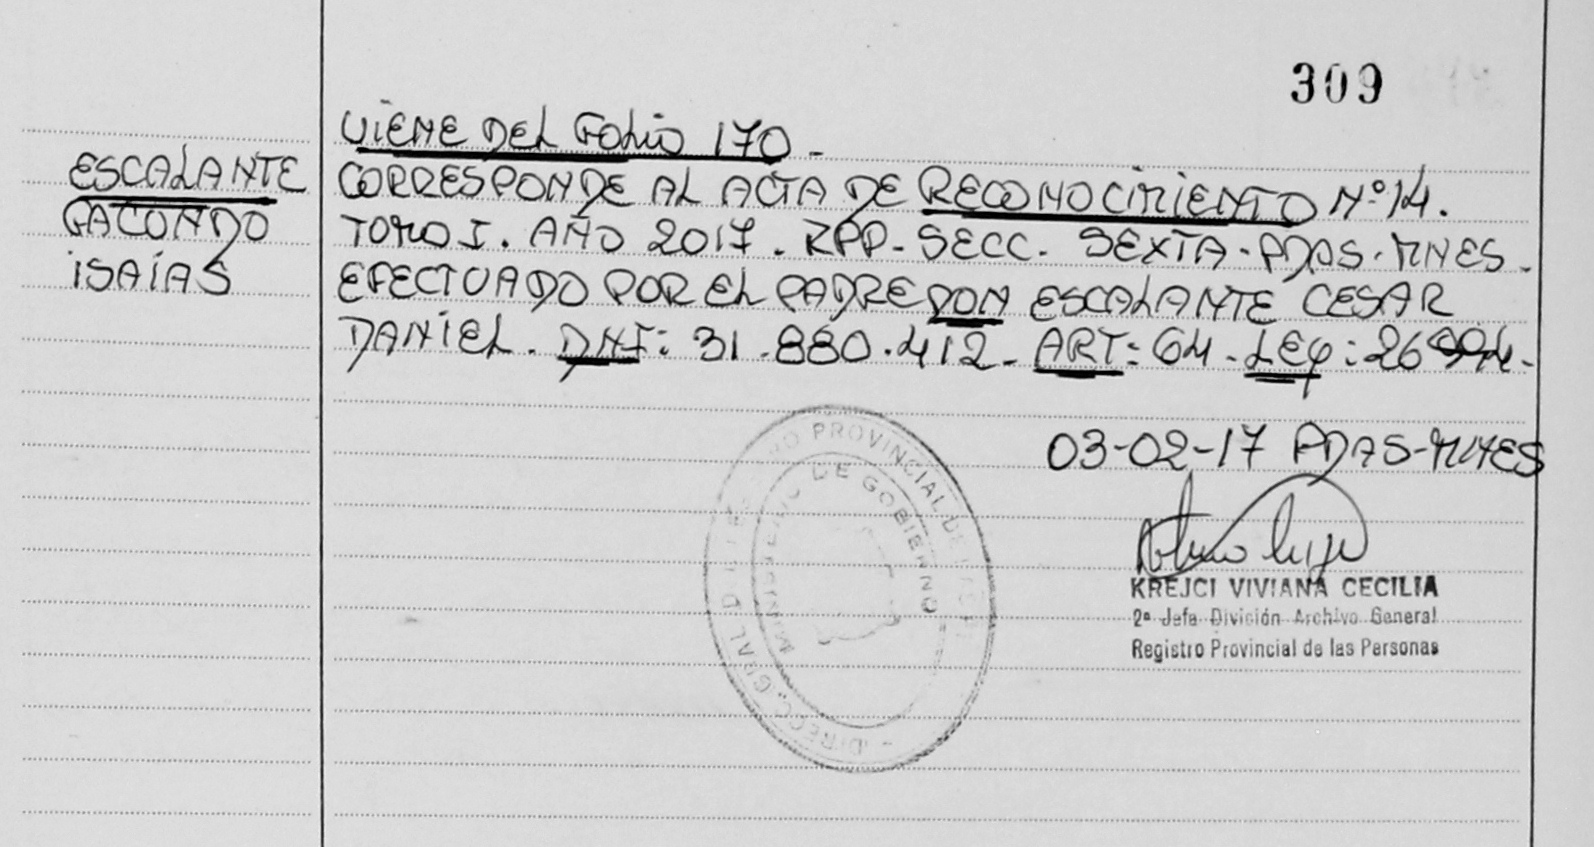 309
VIENE DEL FOLIO 170.-
ESCALANTE
GACONDO
ISAÍAS
CORRESPONDE AL ACTA DE RECONOCIMIENTO Nº 14.
TOMO I. AÑO 2017. RPP-SECC. SEXTA-PDAS-MNES.
EFECTUADO POR EL PADRE DON ESCALANTE CESAR
DANIEL. DNI: 31.880.412- ART: 64-LEY: 26994-
03-02-17 PDAS-MNES
KREJCI VIVIANA CECILIA
2ª Jefa División Archivo General
Registro Provincial de las Personas
PROVINCIAL DE
MINISTERIO DE GOBIERNO
DIRECC. GRAL DE